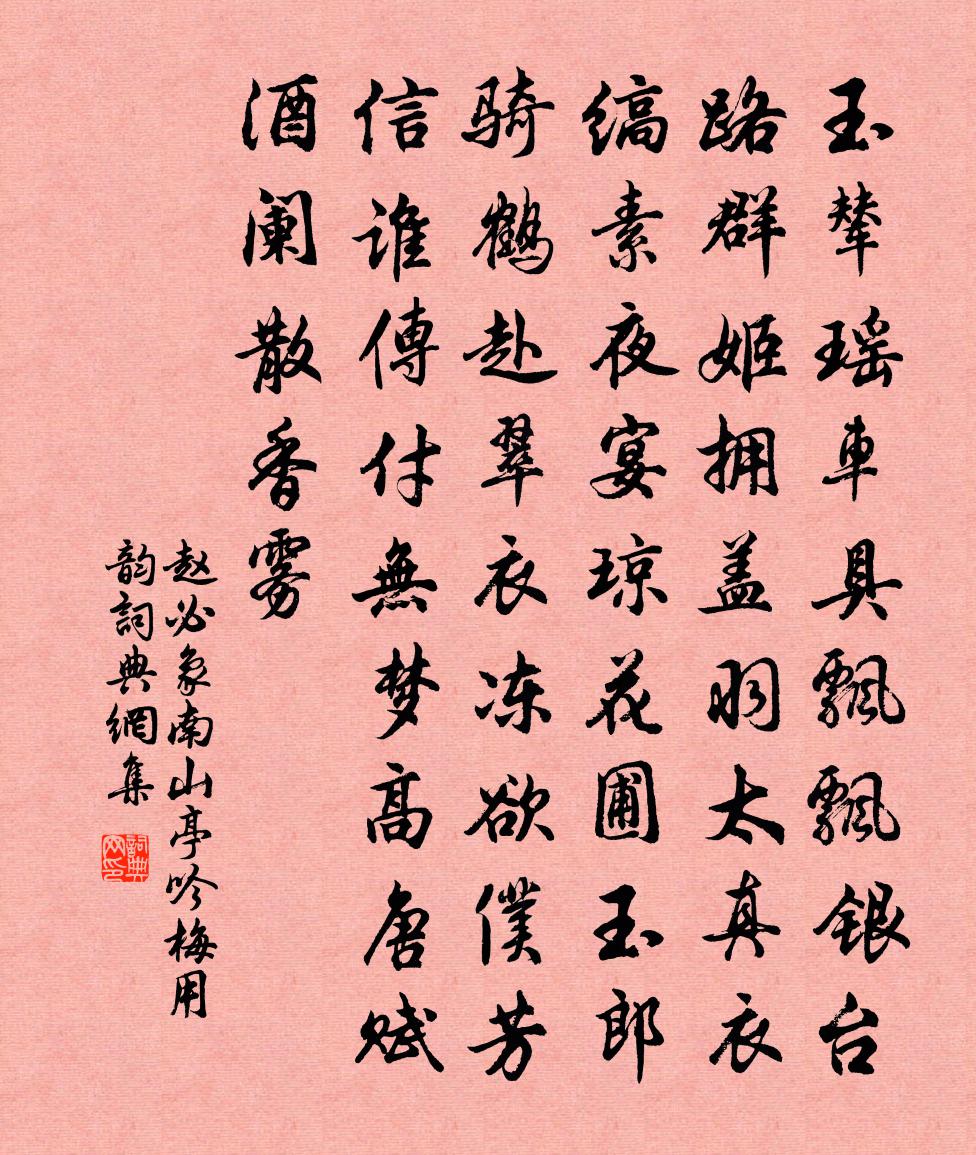 玉辇瑶車具飄飄银台
路群姬拥盖羽太真衣
缟素夜宴琼花圃玉郎
骑鹤赴翠衣冻欲僕芳
信谁傳付無梦高唐赋
酒阑散香雾
赵必象南山亭吟梅用
韵詞典網集